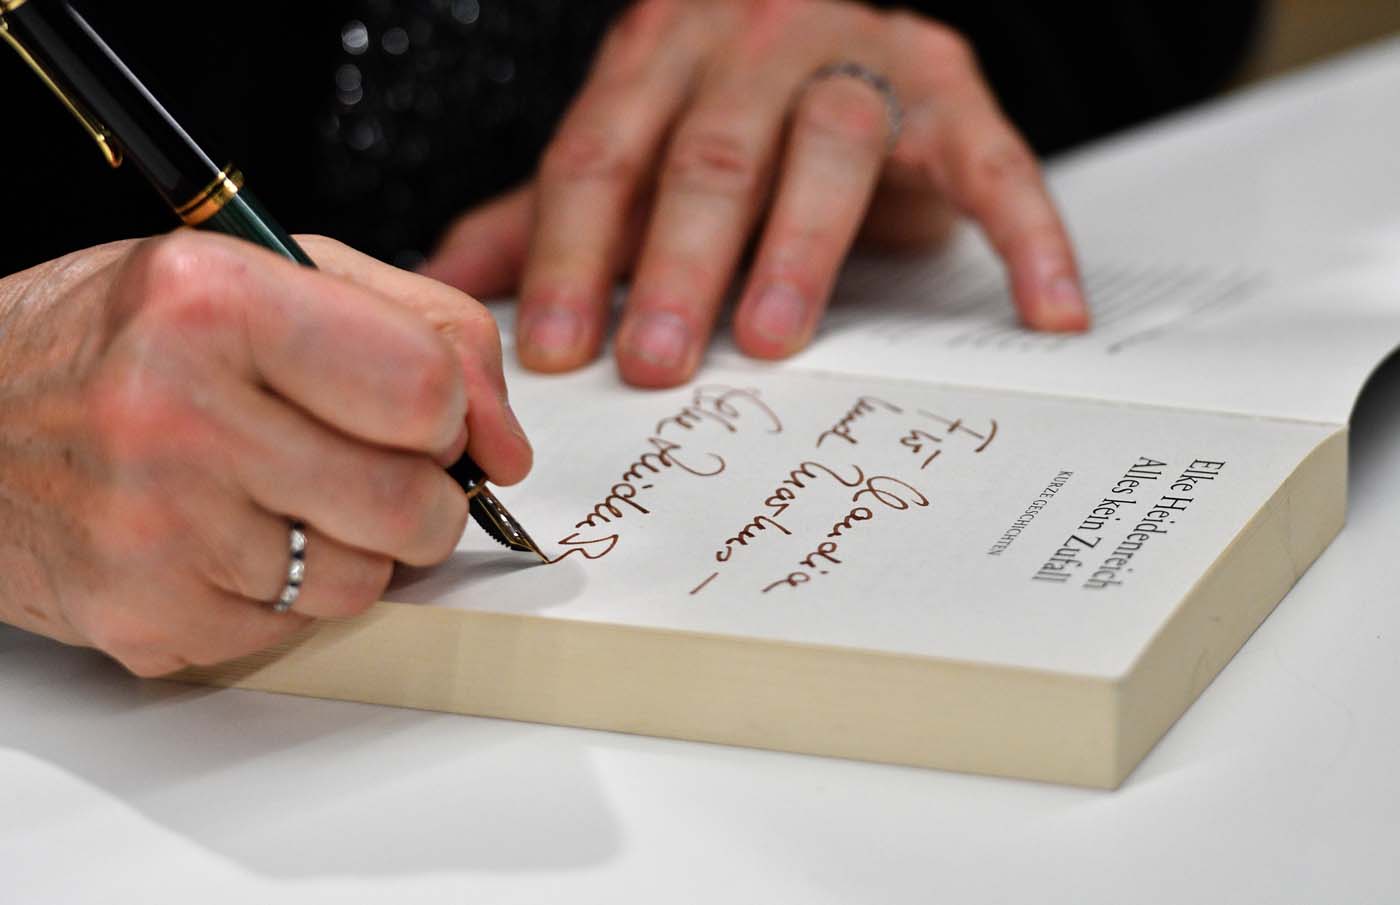 Elke Heidenreich
Alles kein Zufall
KURZE GESCHICHTEN
Für Claudia
und Markus –
Elke Heidenr